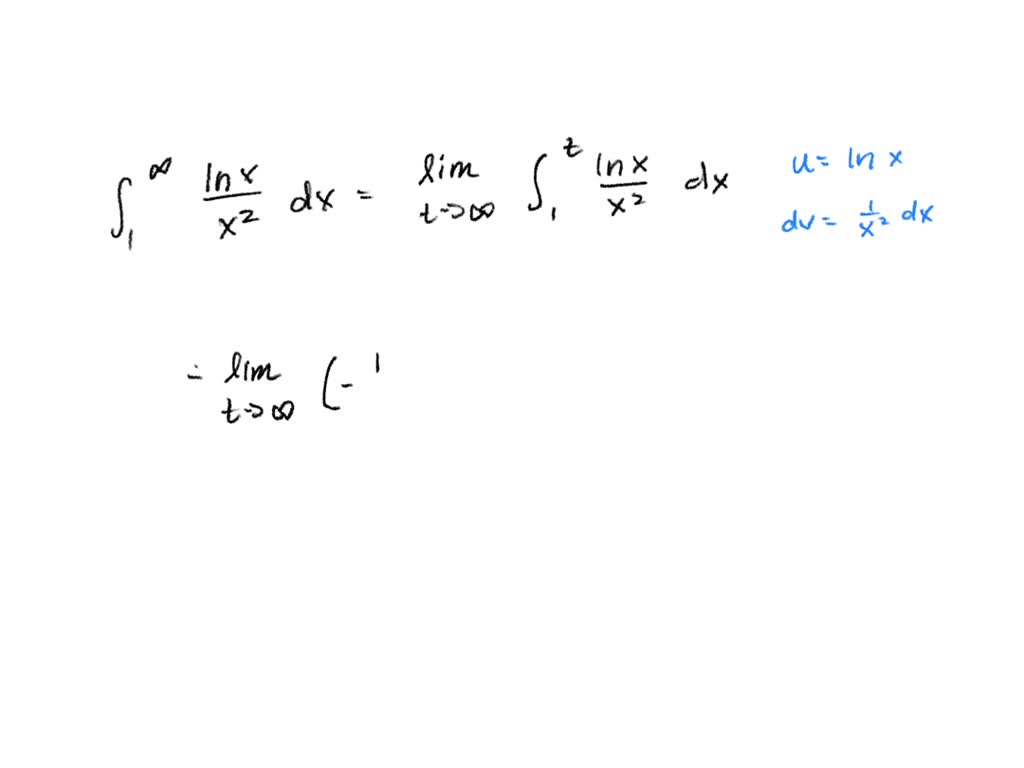 ∫₁^∞ ln x / x² dx = lim t→∞ ∫₁^t ln x / x² dx
u = ln x
dv = 1/x² dx
= lim t→∞ (- 1